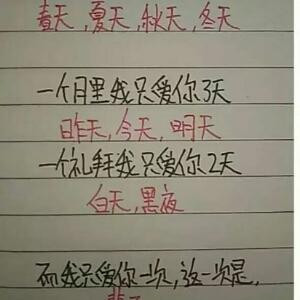 春天,夏天,秋天,冬天
一个月里我只爱你3天
昨天,今天,明天
一个礼拜我只爱你2天
白天,黑夜
而我只爱你一次,这一次是,